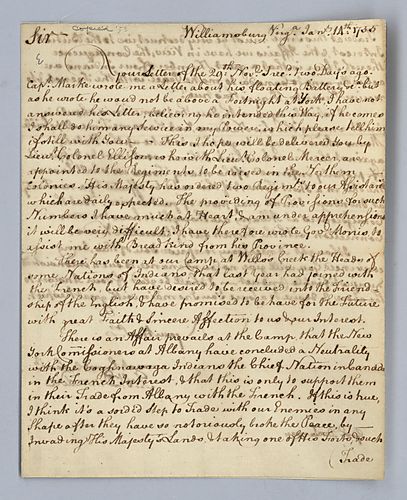 Copied
Williamsburg Virg.ª Janry. 14th. 1755
Sir
Your Letter of the 29th. Novr. I recd. two Days ago.
Capt. Marke wrote me a Letter about his floating Battery &c. but
as he wrote he would not be above a Fortnight at York, I have not
answered his Letter, believing he intended this Way, if he comes
I shall do him any Service in my Power, which please tell him
if still with You. This I hope will be delivered You by
Lieut. Colonel Ellison, who with Lieut. Colonel Mercer, are
appointed to the Regiments to be raised in the Northern
Colonies. His Majesty has ordered two Regimts. to our Assistance
which are daily expected. The providing of Provisions for such
Numbers I have much at Heart & am under apprehensions
it will be very difficult. I have therefore wrote Govr. Morris to
assist me with Bread kind from his Province.
There has been at our Camp at Wills's Creek the Heads of
some Nations of Indians, that last Year had joyned with
the French, but have desired to be received into the Friend-
ship of the English, & have promised to be have for the Future
with great Faith & Sincere Affection to us & our Interest.
There is an Affair prevails at the Camp that the New
York Commissioners at Albany have concluded a Neutrality
with the Coghnawaga Indians the Chief Nation in Canada
in the French Interest, & that this is only to support them
in their Trade from Albany with the French. If this is true,
I think it's a sordid Step to Trade with our Enemies in any
Shape after they have so notoriously broke the Peace, by
Invading His Majesty's Lands & taking one of His Forts, such
Trade